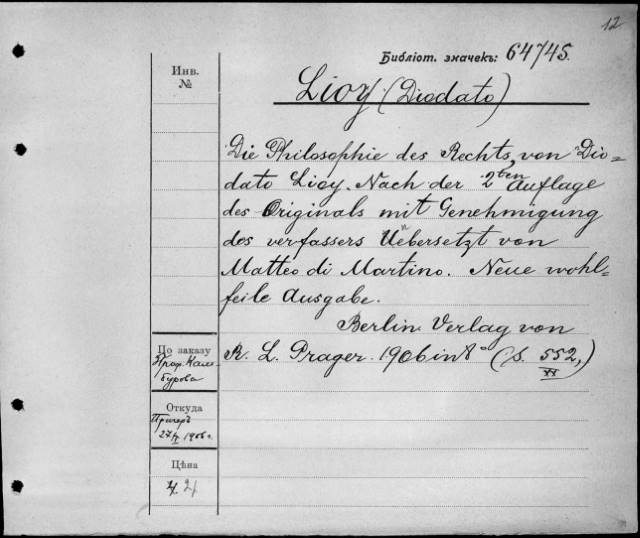 12
Библіот. значекъ: 64745.
Инв.
№
Lioy (Diodato)
Die Philosophie des Rechts, von Dio=
dato Lioy. Nach der 2ten Auflage
des Originals mit Genehmigung
des verfassers Uebersetzt von
Matteo di Martino. Neue wohl=
feile Ausgabe.
Berlin Verlag von
R. L. Prager. 1906 in 8° (S. 552,)
XX
По заказу
Проф.
Откуда
1906 г.
Цѣна
4.